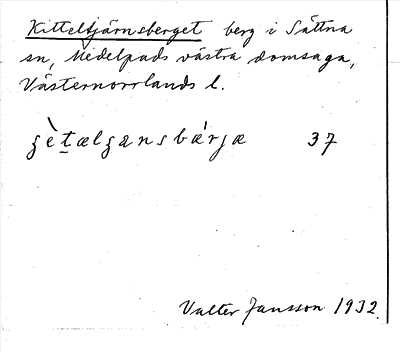 Kitteltjärnsberget berg i Sättna
sn, Medelpads västra domsaga,
Västernorrlands l.
37
Valter Jansson 1932.